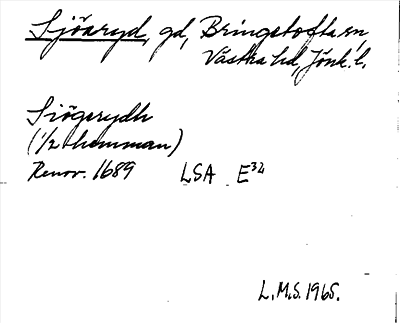 Sjöaryd, gd, Bringetofta sn,
Västra hd, Jönk. l.
Siögerydh
(1/2 hemman)
Renov. 1689 LSA E34
L.M.S. 1965.